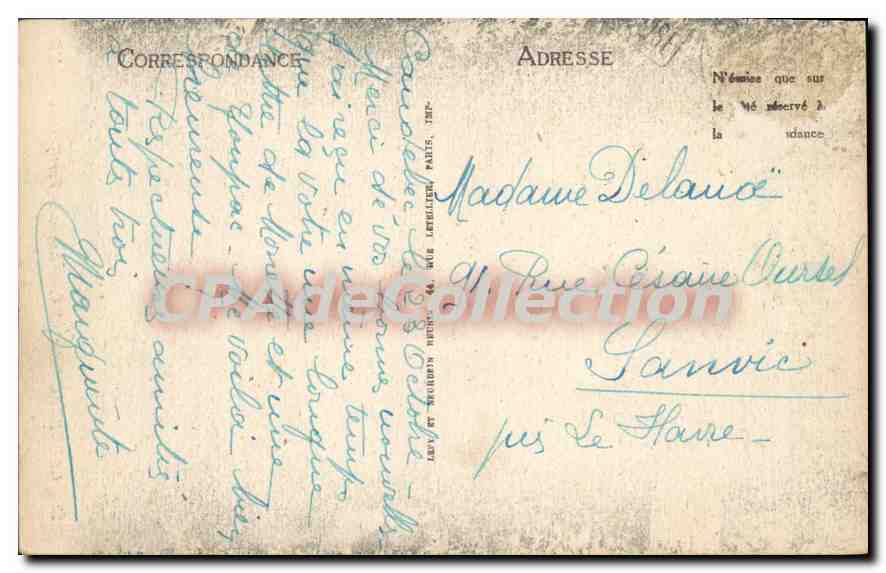 CORRESPONDANCE
Caudebec le 23 Octobre -
Merci de vos bonnes nouvelles
J'ai reçu en même temps
que la vôtre une longue
lettre de Mone et une
de Youpac - Me voilà bien
heureuse
Respectueuses amitiés
à toutes trois
Marguerite
LEVY ET NEURDEIN REUNIS 44, RUE LETELLIER, PARIS. IMP.
ADRESSE
N'écrire que sur
le côté réservé à
la dance
Madame Delanoë
91 Rue Césaire Oursel
Sanvic
près Le Havre -
CPAdeCollection